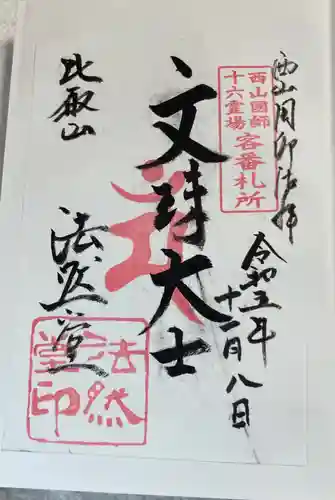 西山国師
十六霊場
客番札所
西山国師御法拝
令和五年
十一月八日
文殊大士
比叡山
法然堂
法然
堂印